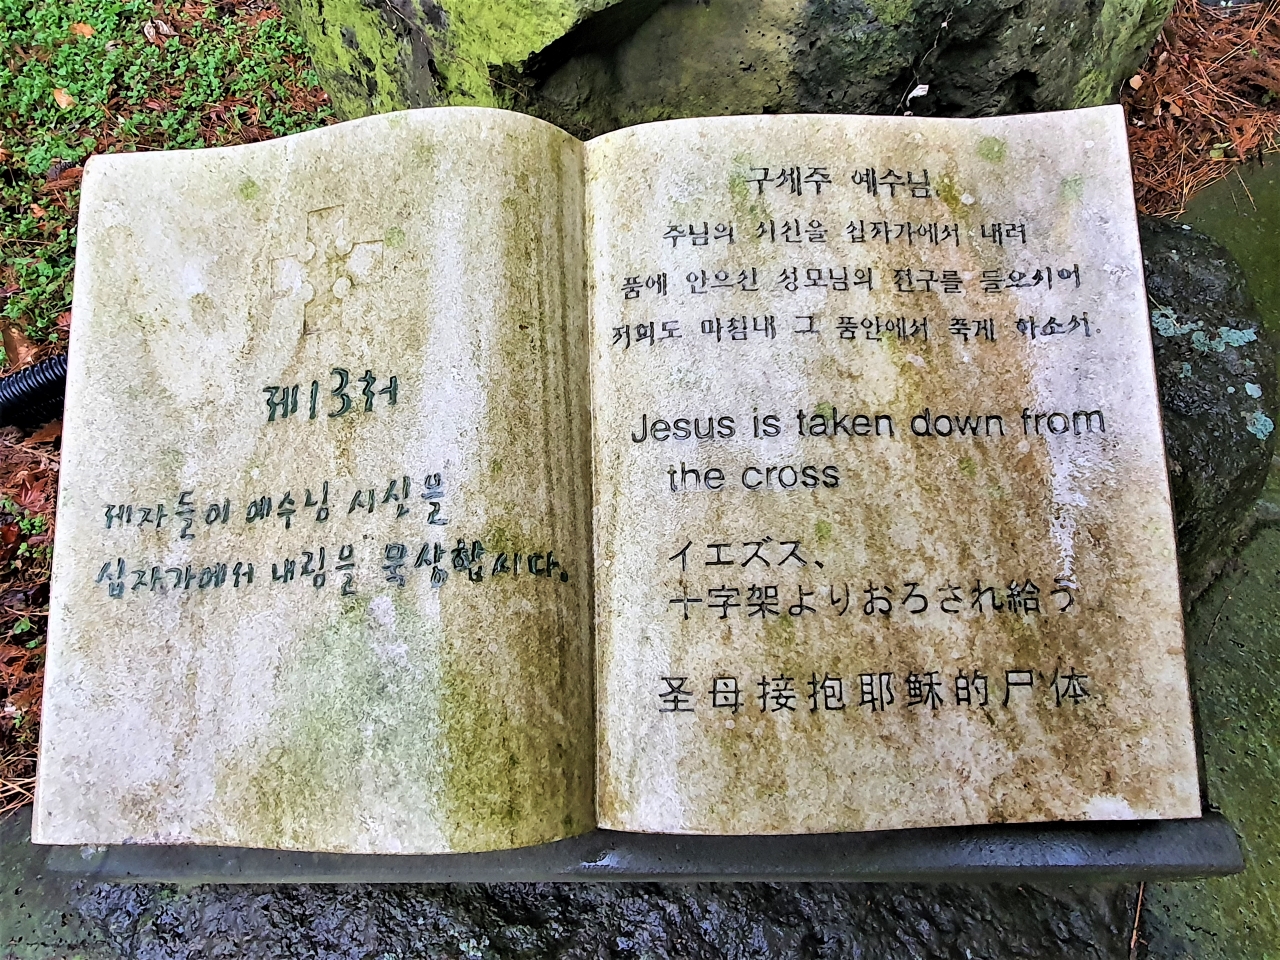 제13처
제자들이 예수님 시신을
십자가에서 내림을 묵상합시다.
구세주 예수님,
주님의 시신을 십자가에서 내려
품에 안으신 성모님의 전구를 들으시어
저희도 마침내 그 품안에서 죽게 하소서.
Jesus is taken down from
the cross
イエズス、
十字架よりおろされ給う
圣母接抱耶稣的尸体